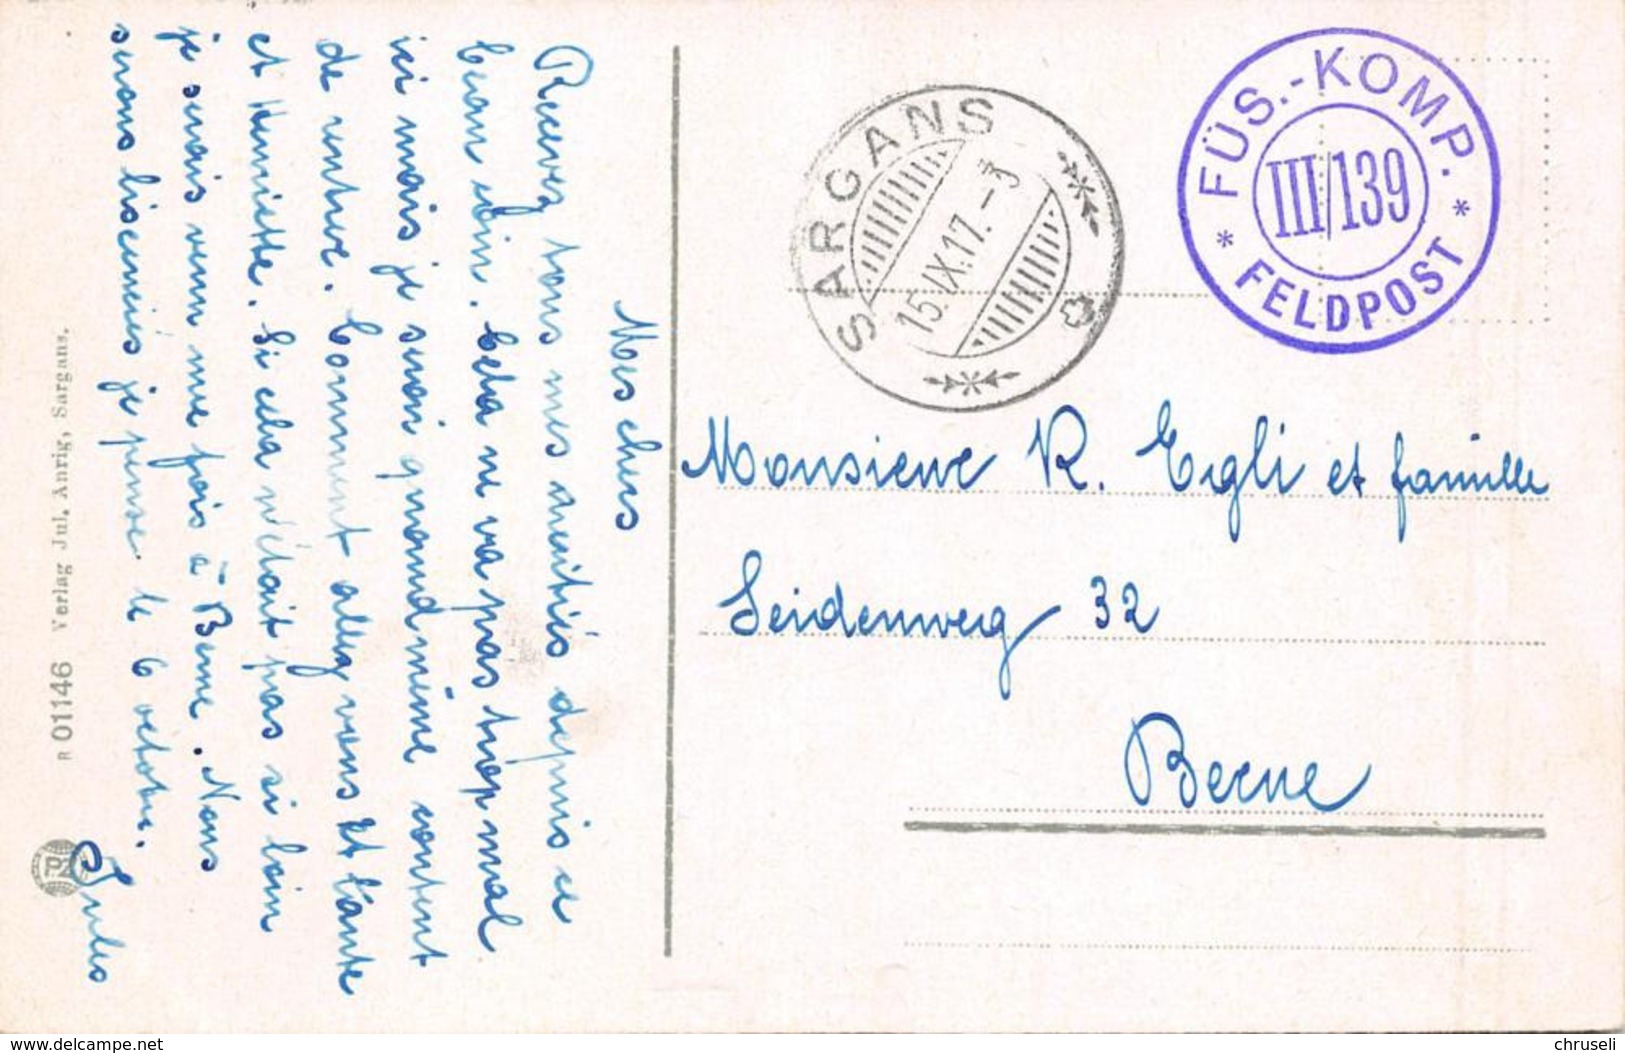 Mes chers
Recevez tous mes amitiés depuis ce
beau coin. Cela ne va pas trop mal
ici mais je serai quand même content
de rentrer. Comment allez vous et tante
et Henriette. Si cela n'était pas si loin
je serais venu une fois à Berne. Nous
serons licenciés je pense le 6 octobre.
Jules
R 01146 Verlag Jul. Anrig, Sargans.
SARGANS
15.IX.17.-3
FÜS.-KOMP.
III/139
* FELDPOST *
Monsieur R. Egli et famille
Seidenweg 32
Berne
delcampe.net
chruseli